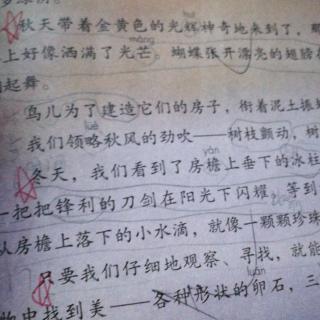 秋天带着金黄色的光辉神奇地来到了，那
上好像洒满了光芒。蝴蝶张开漂亮的翅膀
起舞。
鸟儿为了建造它们的房子，衔着泥土振
我们领略秋风的劲吹——树枝颤动，树
冬天，我们看到了房檐上垂下的冰柱
一把把锋利的刀剑在阳光下闪耀，等到
从房檐上落下的小水滴，就像一颗颗珍珠
只要我们仔细地观察、寻找，就能
物中找到美——各种形状的卵石，三